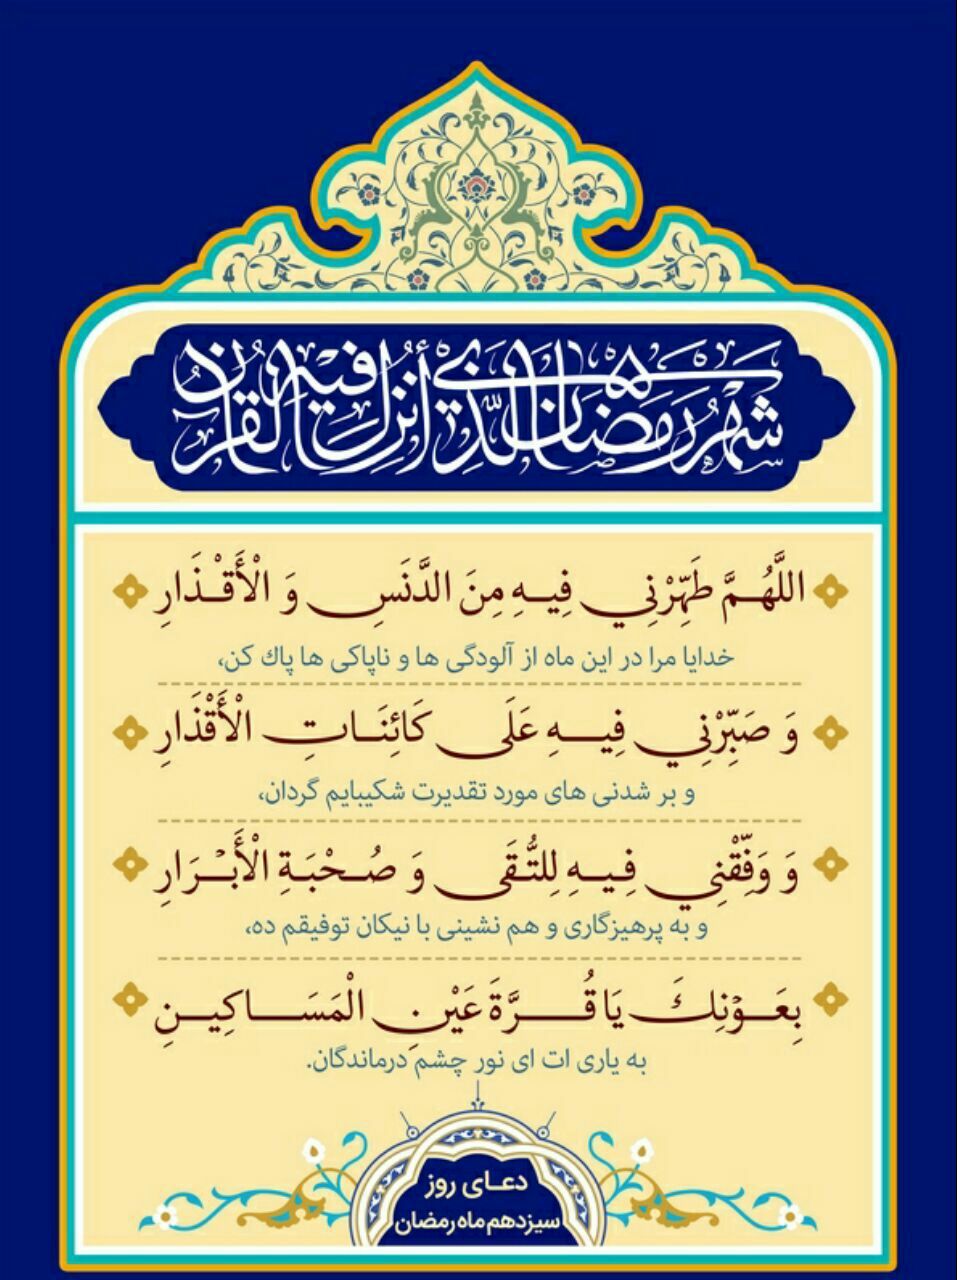 شهر رمضان الذي أنزل فيه القرآن
اللَّهُمَّ طَهِّرْنِي فِيهِ مِنَ الدَّنَسِ وَ الْأَقْذَارِ
خدایا مرا در این ماه از آلودگی ها و ناپاکی ها پاك کن،
وَ صَبِّرْنِي فِيهِ عَلَى كَائِنَاتِ الْأَقْذَارِ
و بر شدنی های مورد تقدیرت شکیبایم گردان،
وَ وَفِّقْنِي فِيهِ لِلتُّقَى وَ صُحْبَةِ الْأَبْرَارِ
و به پرهیزگاری و هم نشینی با نیکان توفیقم ده،
بِعَوْنِكَ يَا قُرَّةَ عَيْنِ الْمَسَاكِينِ
به یاری ات ای نور چشم درماندگان.
دعای روز
سیزدهم ماه رمضان